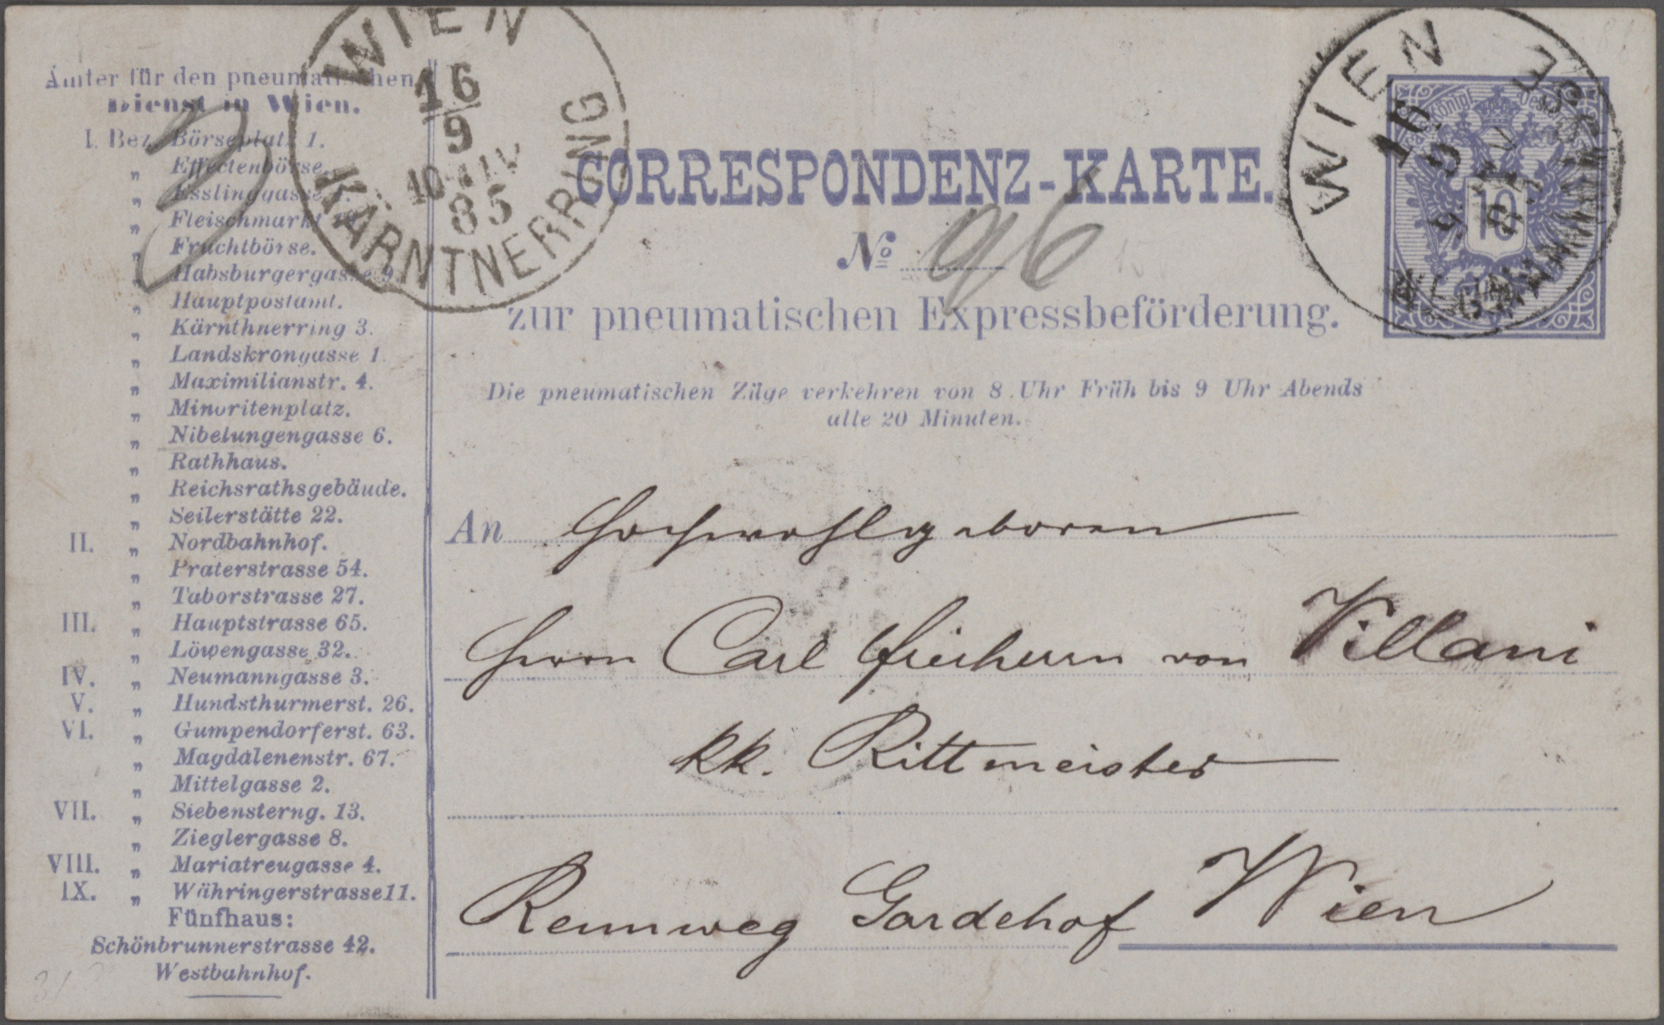 Ämter für den pneumatischen
Dienst in Wien.
I. Bez. Börseplatz 1.
„ Effectenbörse.
„ Esslinggasse
„ Fleischmarkt
„ Fruchtbörse.
„ Habsburgergasse 9.
„ Hauptpostamt.
„ Kärnthnerring 3.
„ Landskrongasse 1.
„ Maximilianstr. 4.
„ Minoritenplatz.
„ Nibelungengasse 6.
„ Rathhaus.
„ Reichsrathsgebäude.
„ Seilerstätte 22.
II. „ Nordbahnhof.
„ Praterstrasse 54.
„ Taborstrasse 27.
III. „ Hauptstrasse 65.
„ Löwengasse 32.
IV. „ Neumanngasse 3.
V. „ Hundsthurmerst. 26.
VI. „ Gumpendorferst. 63.
„ Magdalenenstr. 67.
„ Mittelgasse 2.
VII. „ Siebensterng. 13.
„ Zieglergasse 8.
VIII. „ Mariatreugasse 4.
IX. „ Währingerstrasse 11.
Fünfhaus:
Schönbrunnerstrasse 42.
Westbahnhof.
WIEN
16
9
85
KÄRNTNERRING
CORRESPONDENZ-KARTE.
No 96
zur pneumatischen Expressbeförderung.
Die pneumatischen Züge verkehren von 8 Uhr Früh bis 9 Uhr Abends
alle 20 Minuten.
WIEN
16
9
10
An Hochwohlgeboren
Herrn Carl Freiherrn von Villani
kk. Rittmeister
Rennweg Gardehof Wien